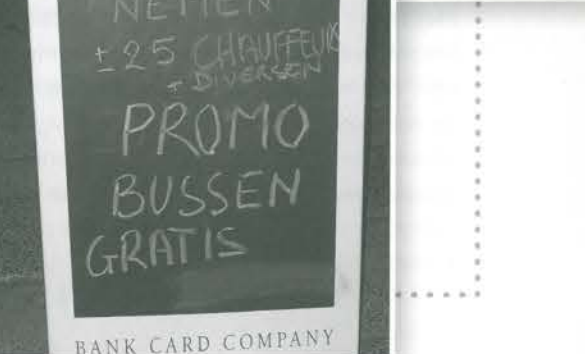 NETTEN
± 25 CHAUFFEURS
+ DIVERSEN
PROMO
BUSSEN
GRATIS
BANK CARD COMPANY